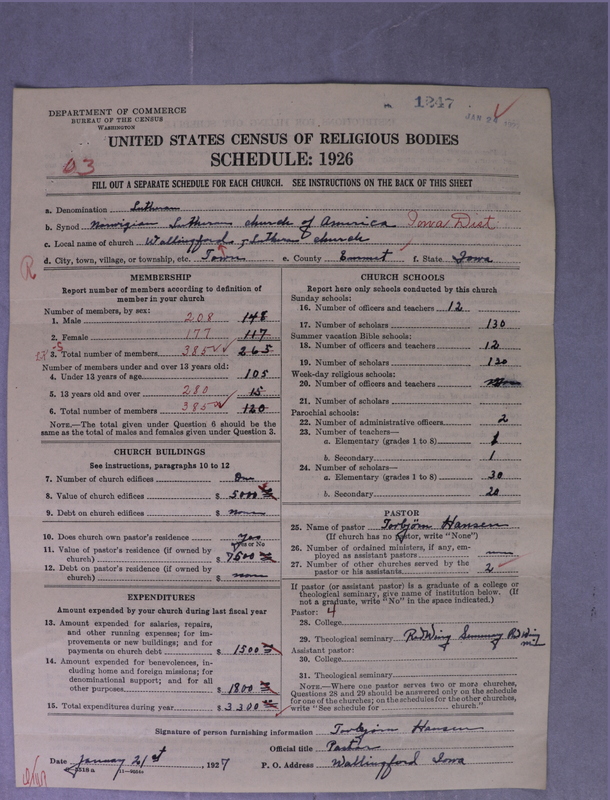 1247
JAN 24
DEPARTMENT OF COMMERCE
BUREAU OF THE CENSUS
WASHINGTON
UNITED STATES CENSUS OF RELIGIOUS BODIES
SCHEDULE: 1926
03
FILL OUT A SEPARATE SCHEDULE FOR EACH CHURCH. SEE INSTRUCTIONS ON THE BACK OF THIS SHEET
a. Denomination Lutheran
b. Synod Norwigian Lutheran church of America Iowa Dist
c. Local name of church Wallingford, Lutheran church
d. City, town, village, or township, etc. Town e. County Emmet f. State Iowa
R
MEMBERSHIP
Report number of members according to definition of
member in your church
Number of members, by sex:
1. Male 208 148
2. Female 177 117
3. Total number of members 385 265
Number of members under and over 13 years old:
4. Under 13 years of age 105
5. 13 years old and over 280 15
6. Total number of members 385 120
NOTE.—The total given under Question 6 should be the
same as the total of males and females given under Question 3.
CHURCH BUILDINGS
See instructions, paragraphs 10 to 12
7. Number of church edifices One
8. Value of church edifices $ 5000
9. Debt on church edifices $ none
10. Does church own pastor's residence? Yes
Yes or No
11. Value of pastor's residence (if owned by
church) $ 7500
12. Debt on pastor's residence (if owned by
church) $ none
EXPENDITURES
Amount expended by your church during last fiscal year
13. Amount expended for salaries, repairs,
and other running expenses; for im-
provements or new buildings; and for
payments on church debt $ 1500
14. Amount expended for benevolences, in-
cluding home and foreign missions; for
denominational support; and for all
other purposes $ 1800
15. Total expenditures during year $ 3300
CHURCH SCHOOLS
Report here only schools conducted by this church
Sunday schools:
16. Number of officers and teachers 12
17. Number of scholars 130
Summer vacation Bible schools:
18. Number of officers and teachers 12
19. Number of scholars 120
Week-day religious schools:
20. Number of officers and teachers
21. Number of scholars
Parochial schools:
22. Number of administrative officers 2
23. Number of teachers—
a. Elementary (grades 1 to 8) 1
b. Secondary 1
24. Number of scholars—
a. Elementary (grades 1 to 8) 30
b. Secondary 20
PASTOR
25. Name of pastor Torbjörn Hansen
(If church has no pastor, write "None")
26. Number of ordained ministers, if any, em-
ployed as assistant pastors
27. Number of other churches served by the
pastor or his assistants 2
If pastor (or assistant pastor) is a graduate of a college or
theological seminary, give name of institution below. (If
not a graduate, write "No" in the space indicated.)
Pastor: 4
28. College
29. Theological seminary Red Wing Seminary Red Wing
Assistant pastor:
30. College
31. Theological seminary
NOTE.—Where one pastor serves two or more churches,
Questions 28 and 29 should be answered only on the schedule
for one of the churches; on the schedules for the other churches,
write "See schedule for church."
Signature of person furnishing information Torbjörn Hansen
Official title Pastor
Date January 21st, 1927 P. O. Address Wallingford Iowa